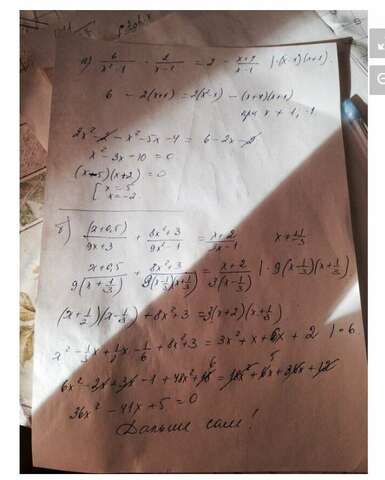 а) 6/x²-1 - 2/x-1 = 2 - x+4/x-1 | ·(x-1)(x+1).
6 - 2(x+1) = 2(x²-1) - (x+4)(x+1)
при x ≠ 1, -1
2x² - 2 - x² - 5x - 4 = 6 - 2x - 2
x² - 3x - 10 = 0
(x-5)(x+2) = 0
[ x = 5
x = -2
б) (x+0,5)/9x+3 + 8x²+3/9x²-1 = x+2/3x-1
x+0,5/9(x+1/3) + 8x²+3/9(x-1/3)(x+1/3) = x+2/3(x-1/3) | ·9(x-1/3)(x+1/3)
(x+1/2)(x-1/3) + 8x²+3 = 3(x+2)(x+1/3)
x² - 1/3x + 1/2x - 1/6 + 8x²+3 = 3x² + x + 6x + 2 | ·6
36x² - 41x + 5 = 0
Дальше сам!